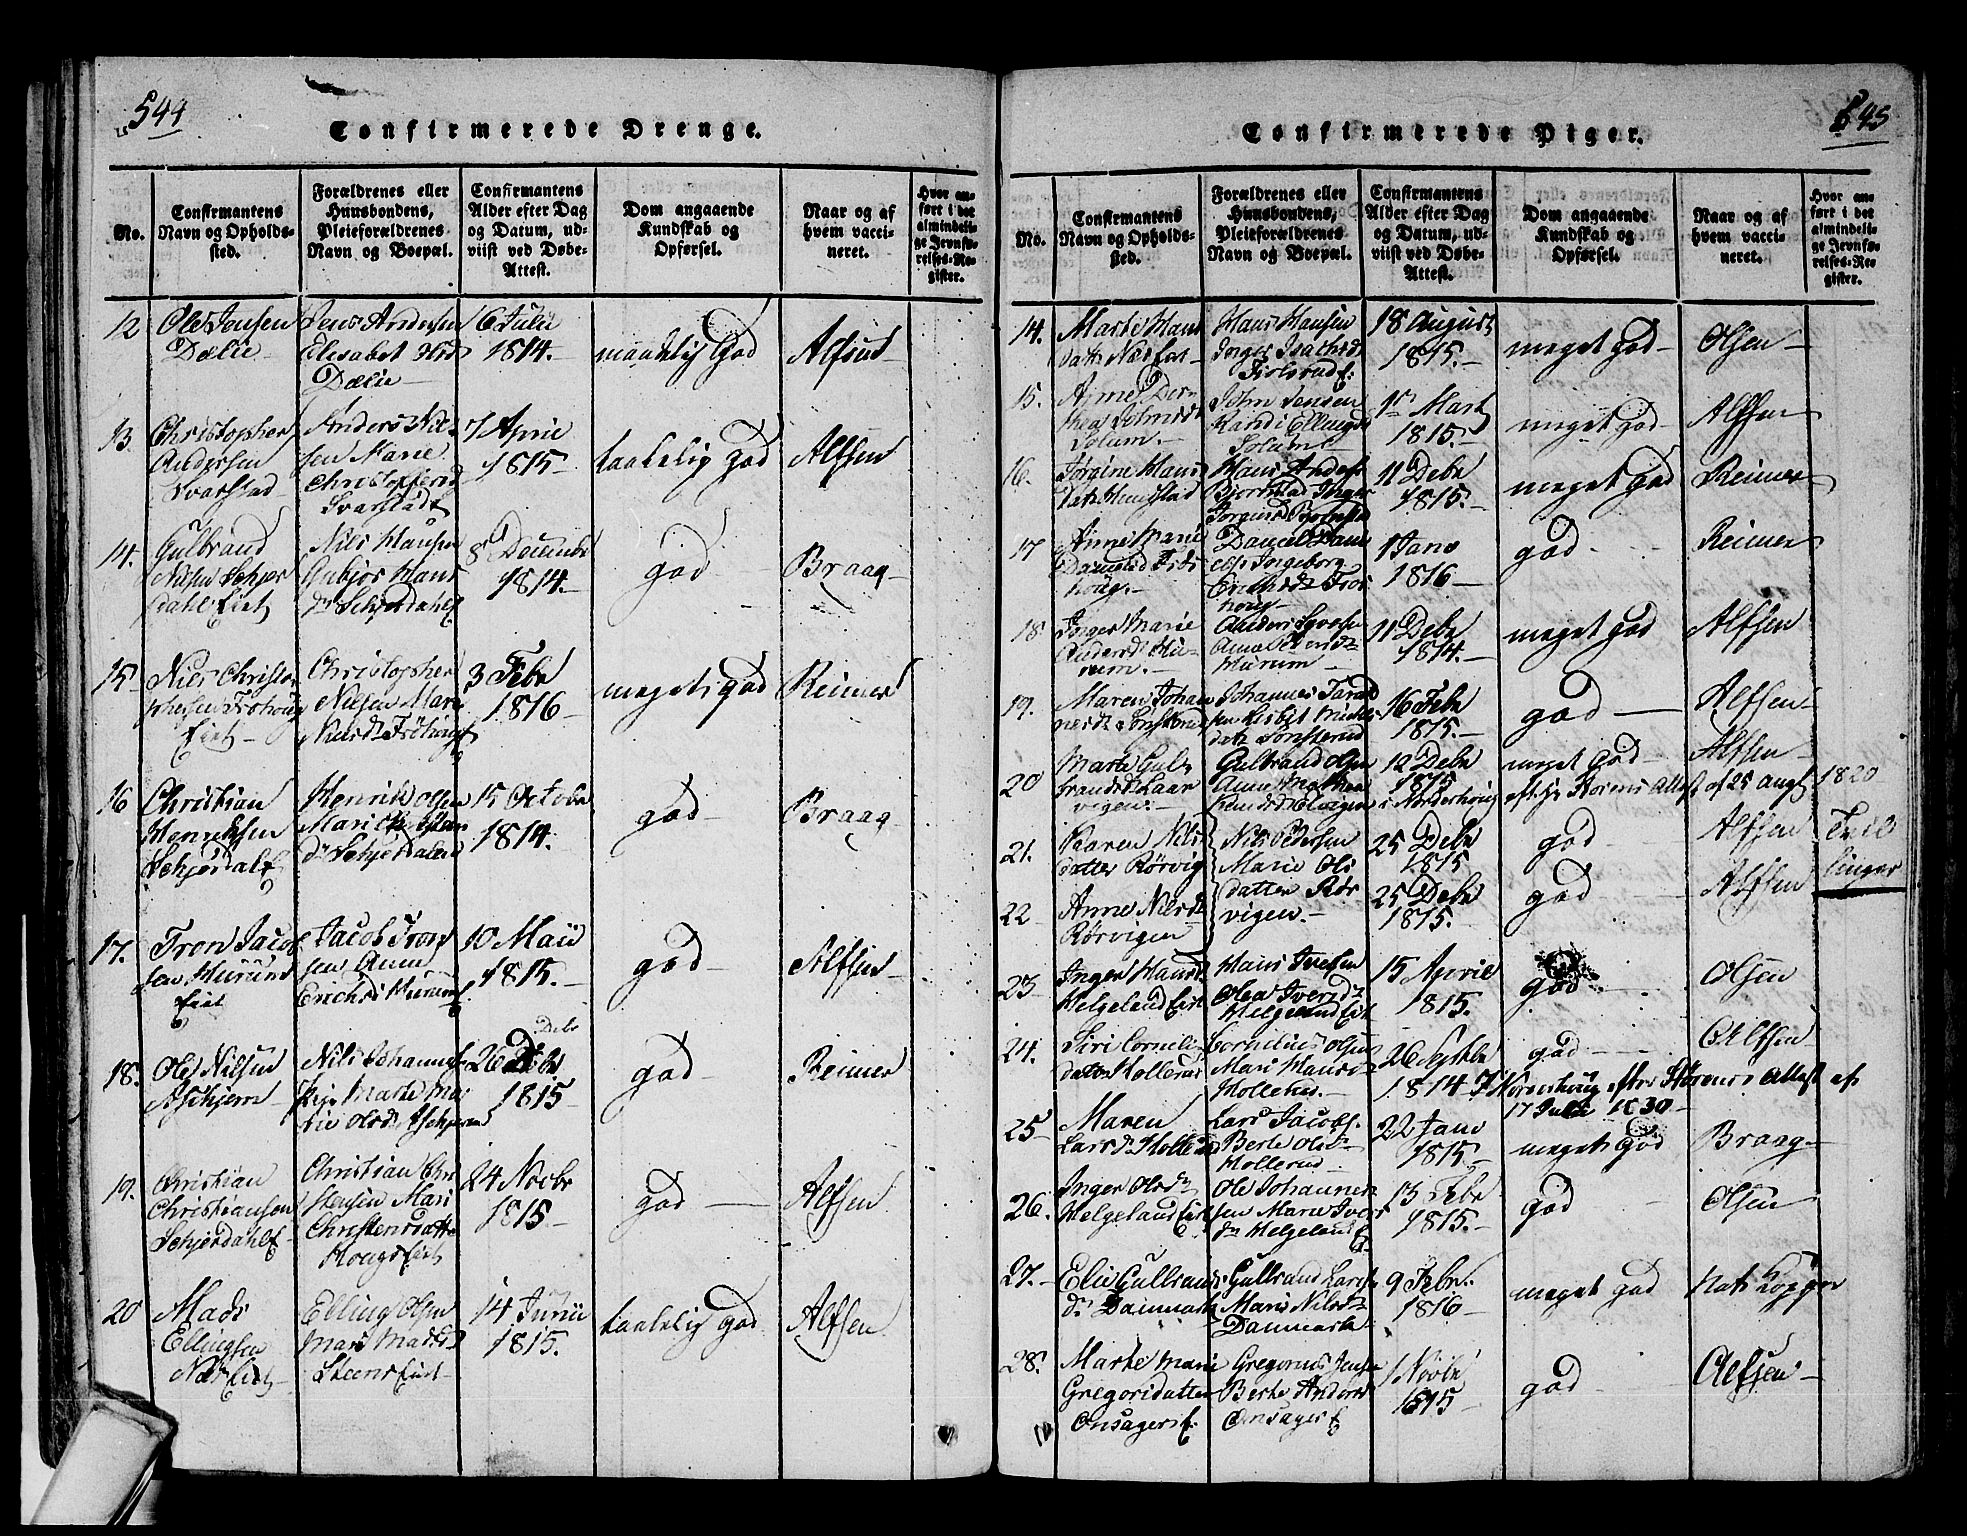 544
Confirmerede Drenge.
No.
Confirmantens
Navn og Opholds-
sted.
Forældrenes eller
Huusbondens,
Pleieforældrenes
Navn og Boepæl.
Confirmantens
Alder efter Dag
og Datum, ud-
viist ved Døbe-
Attest.
Dom angaaende
Kundskab og
Opførsel.
Naar og af
hvem vacci-
neret.
Hvor an-
ført i det
almindeli-
ge Jevnfø-
relses-Re-
gister.
12
Ole Jensen
Dælie
Jens Andersen
Elisabet
Dælie
6 Julii
1814.
maadelig God
Alfsen
13.
Christopher
Andersen
Svarstad
Anders Niel-
sen Marie
Christoffersd
Svarstad
7 April
1815
taalelig god
Alfsen
14.
Gulbrand
Nilsen Schjer
dahls Eiet
Nils Hansen
Anbjør Hans
dr Schjerdahls
8 Decembr
1814.
god
Braag
15
Nils Christo
phersen Frøhoug
Eiet
Christopher
Nielsen Mari
Knudsdr
3 Febr
1816
meget god
Reimer
16
Christian
Henriksen
Schjerdal E
Henrik Olsen
Mari
dr Schjerdalen
15 Octobr
1814.
god
Braag
17.
Tron Jacob
sen Murum
Eiet
Jacob Tron
sen Anne
Erichsd Murum
10 Maii
1815.
god
Alfsen
18.
Ole Nilsen
Aschjem
Nils Johannes
Marte
Olsd Aschjem
26 Debr
1815
god
Reimer
19.
Christian
Christiansen
Schjerdahl E
Christian Chri
stensen Mari
Christensdatter
Hougs Eiet
24 Novbr
1815
god
Alfsen
20
Mads
Ellingsen
Næs Eiet
Elling Olsen
Mari Madsd
Steens Eiet
14 Junii
1815.
taalelig god
Alfsen
645
Confirmerede Piger.
No.
Confirmantens
Navn og Opholds-
sted.
Forældrenes eller
Huusbondens,
Pleieforældrenes
Navn og Boepæl.
Confirmantens
Alder efter Dag
og Datum, ud-
viist ved Døbe-
Attest.
Dom angaaende
Kundskab og
Opførsel.
Naar og af
hvem vacci-
neret.
Hvor an-
ført i det
almindeli-
ge Jevnfø-
relses-Re-
gister.
14.
Marte Hans
datter Næs Eiet
Hans Hansen
Inger Isachsd
18 August
1815.
meget god
Olsen
15.
Anne Dor
thea Johnsd
Solum.
John Jensen
Randi Ellingsd
Solum
1 Mart
1815.
meget god
Alfsen
16.
Jørgine Hans
datter
Hans Anders
Bjørnstad Inger
Bjørnstad
11 Debr
1815.
meget god
Reimer
17
Anne Marie
Danielsd Frøs
houg.
Daniel Dani
elsen Ingeborg
Erichsd Frøs
houg
1 Janv
1816
god
Reimer
18
Inger Marie
Andersd Mu-
rum.
Anders Iversen
Anne Pedersd
Murum
11 Debr
1814.
meget god
Alfsen
19.
Maren Johan
nesd Tønsterud
Johannes Tarald
sen Lisbet
datter Tønsterud
16 Febr
1815.
god
Alfsen
20
Marte Gul
brandsd Laar
vigen
Gulbrand Olsen
Anne Mathea
12 Debr
1815
meget God
Alfsen
i Norderhoug efter Størens Attest af 25 Augt 1820
21.
Karen Nils
datter Rørvig
Nils Pedersen
Marie Ols
datter Rør
vigen.
25 Debr
1815
god
Alfsen
Tvil
linger
22
Anne Nilsd
Rørvigen
25 Debr
1815.
god
Alfsen
23
Inger Hansd
Helgeland Eiet
Hans Iversen
Olea Iversd
Helgeland Eiet
15 April
1815.
god
Olsen
24.
Siri Corneli
datter Hollerud
Cornelius Olsen
Mari Hansd
Hollerud.
26 Septbr
1814
god
Alfsen
I Norderhoug efter Størens Attest af
17 Julii 1830
25
Maren
Larsdr Hollerud
Lars Jacobs.
Berte Olsdr
Hollerud
22 Janv
1815
meget god
Braag
26.
Inger Olsdr
Helgeland Eiet
Ole Johannes
sen Marie Ivers
dr Helgeland E
13 Febr
1815.
god
Olsen
27.
Elie Gulbrands
dr Danmark
Gulbrand Larsen
Maris Nilsd
Danmark
9 Febr.
1816
meget god
28.
Marte Marie
Gregorisdatter
Onsagers E.
Gregorius Jensen
Berte Andersd
Onsagers E
1 Novbr
1815
god
Alfsen